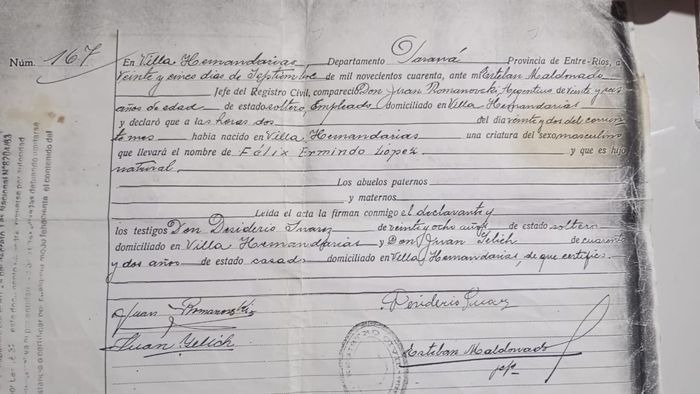 Núm. 167
En Villa Hernandarias, Departamento Paraná Provincia de Entre-Ríos, a
veinte y cinco días de Septiembre de mil novecientos cuarenta, ante mí Esteban Maldonado
Jefe del Registro Civil, compareció Don Juan Romanovski Argentino de veinte y seis
años de edad de estado soltero, Empleado domiciliado en Villa Hernandarias
y declaró que a las horas dos del día veinte y dos del corrien
te mes había nacido en Villa Hernandarias una criatura del sexo masculino
que llevará el nombre de Félix Ermindo López y que es hijo
natural.
Los abuelos paternos
y maternos
Leída el acta la firman conmigo el declarante y
los testigos Don Desiderio Suarez de veinte y ocho años de estado soltero
domiciliado en Villa Hernandarias y Don Juan Gelich de cuarenta
y dos años de estado casado domiciliado en Villa Hernandarias, de que certifico.
Juan Romanovski
Desiderio Suarez
Juan Gelich
Esteban Maldonado
jefe